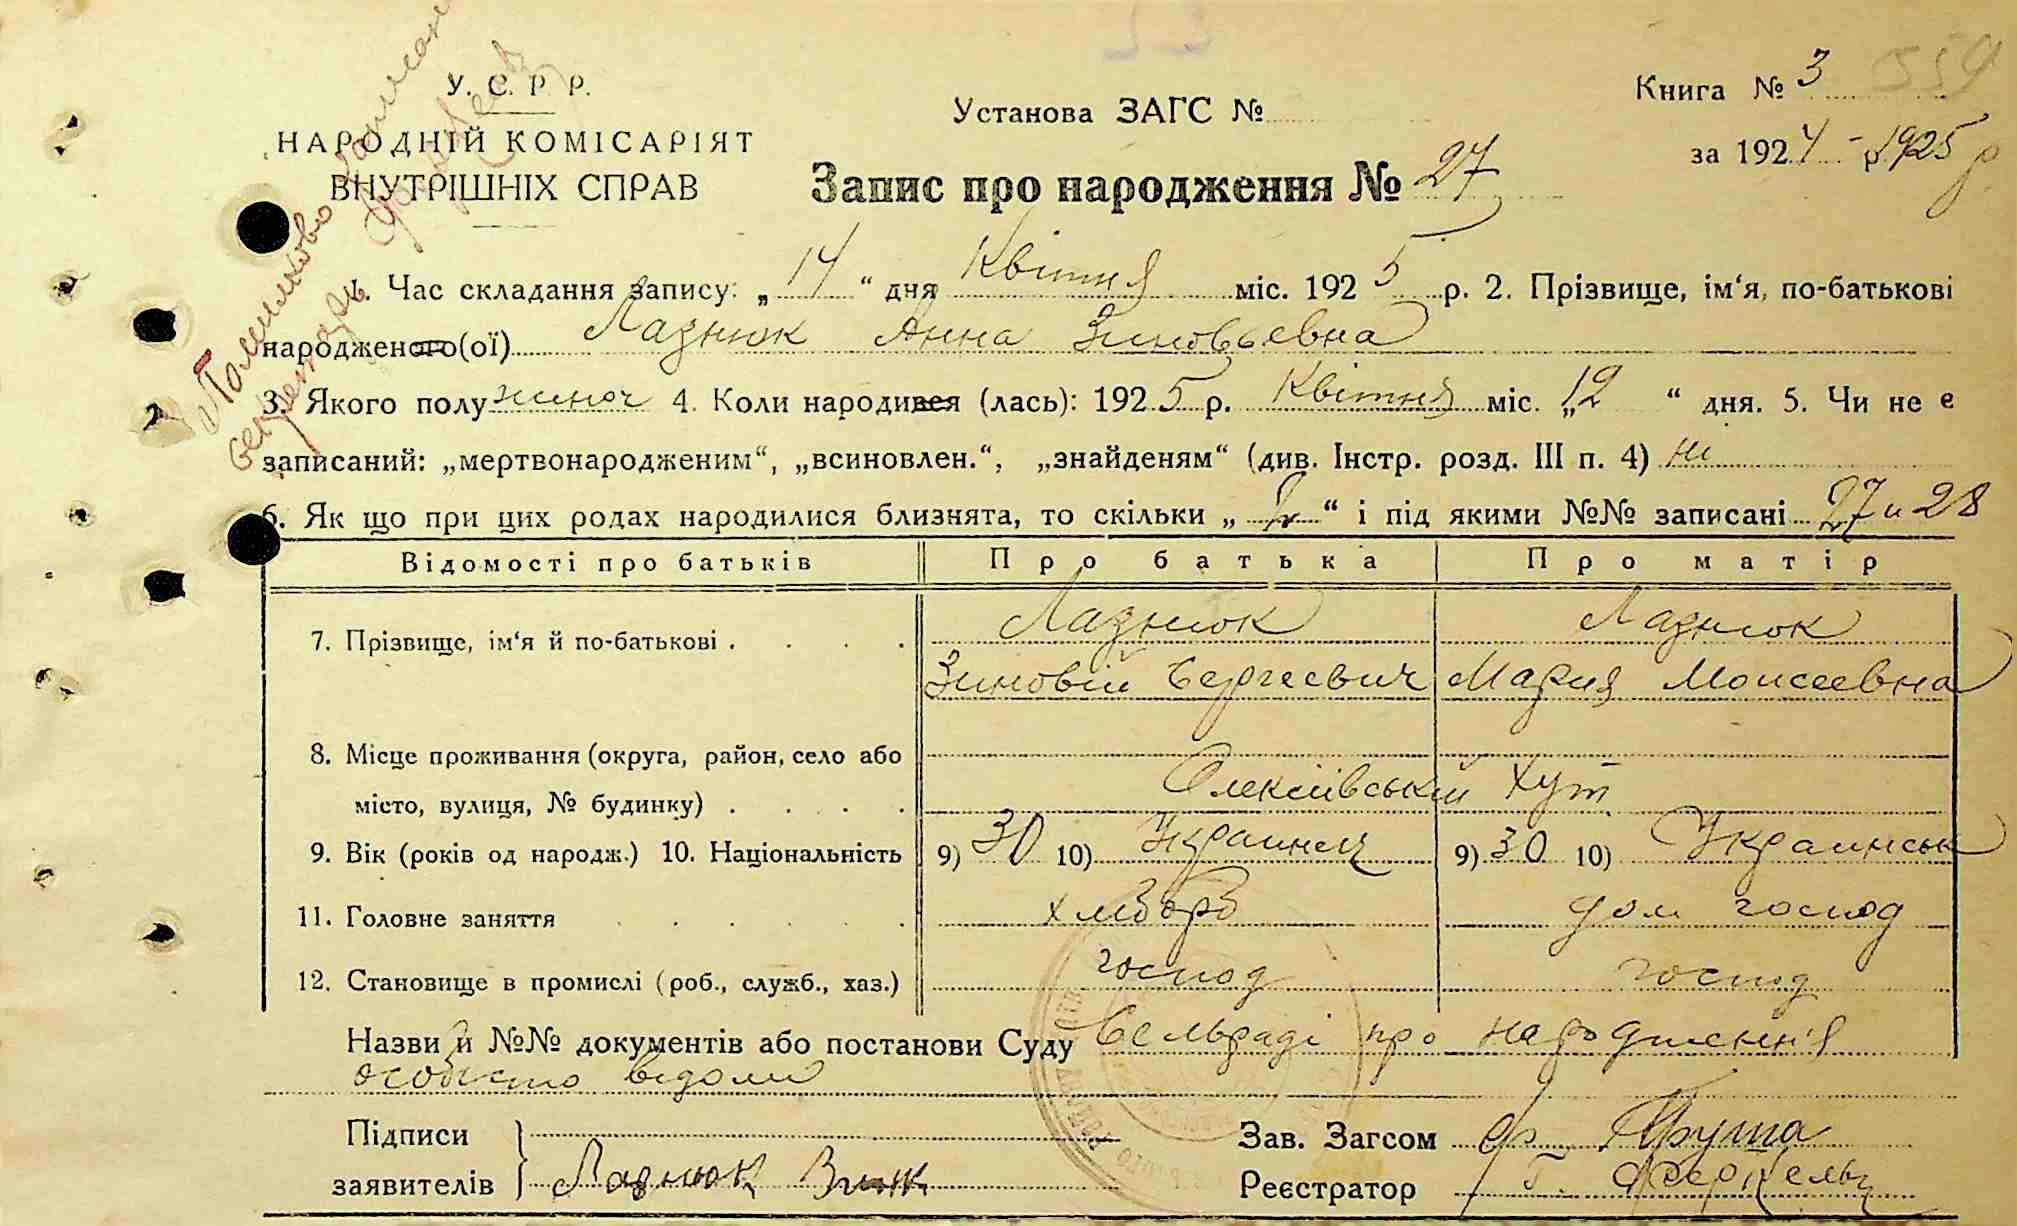 559
У. С. Р. Р.
НАРОДНІЙ КОМІСАРІЯТ
ВНУТРІШНІХ СПРАВ
Установа ЗАГС №
Книга № 3
за 1924 - 1925 р
Запис про народження № 27
Помилково записан
секретарь
1. Час складання запису: „14“ дня Квітня міс. 1925 р. 2. Прізвище, ім‘я, по-батькові
народженого(ої) Лазнюк Анна Зиновьевна
3. Якого полу жиноч 4. Коли народився (лась): 1925 р. Квітня міс. „12“ дня. 5. Чи не є
записаний: „мертвонародженим“, „всиновлен.“, „знайденям“ (див. Інстр. розд. III п. 4) ни
6. Як що при цих родах народилися близнята, то скільки „2“ і під якими №№ записані 27 и 28
Відомості про батьків Про батька Про матір
7. Прізвище, ім‘я й по-батькові . . . . Лазнюк Лазнюк
Зиновій Сергеевич Мария Моисеевна
8. Місце проживання (округа, район, село або
місто, вулиця, № будинку) . . . . Олексіївський Хут
9. Вік (років од народж.) 10. Національність 9) 30 10) Украинец 9) 30 10) Украинськ
11. Головне заняття . . . . . хлібороб дом господ
12. Становище в промислі (роб., служб., хаз.) господ господ
Назви й №№ документів або постанови Суду Сельраді про народження
особисто відомі
Підписи
заявителів Лазнюк Зинк
Зав. Загсом
Реєстратор Г.